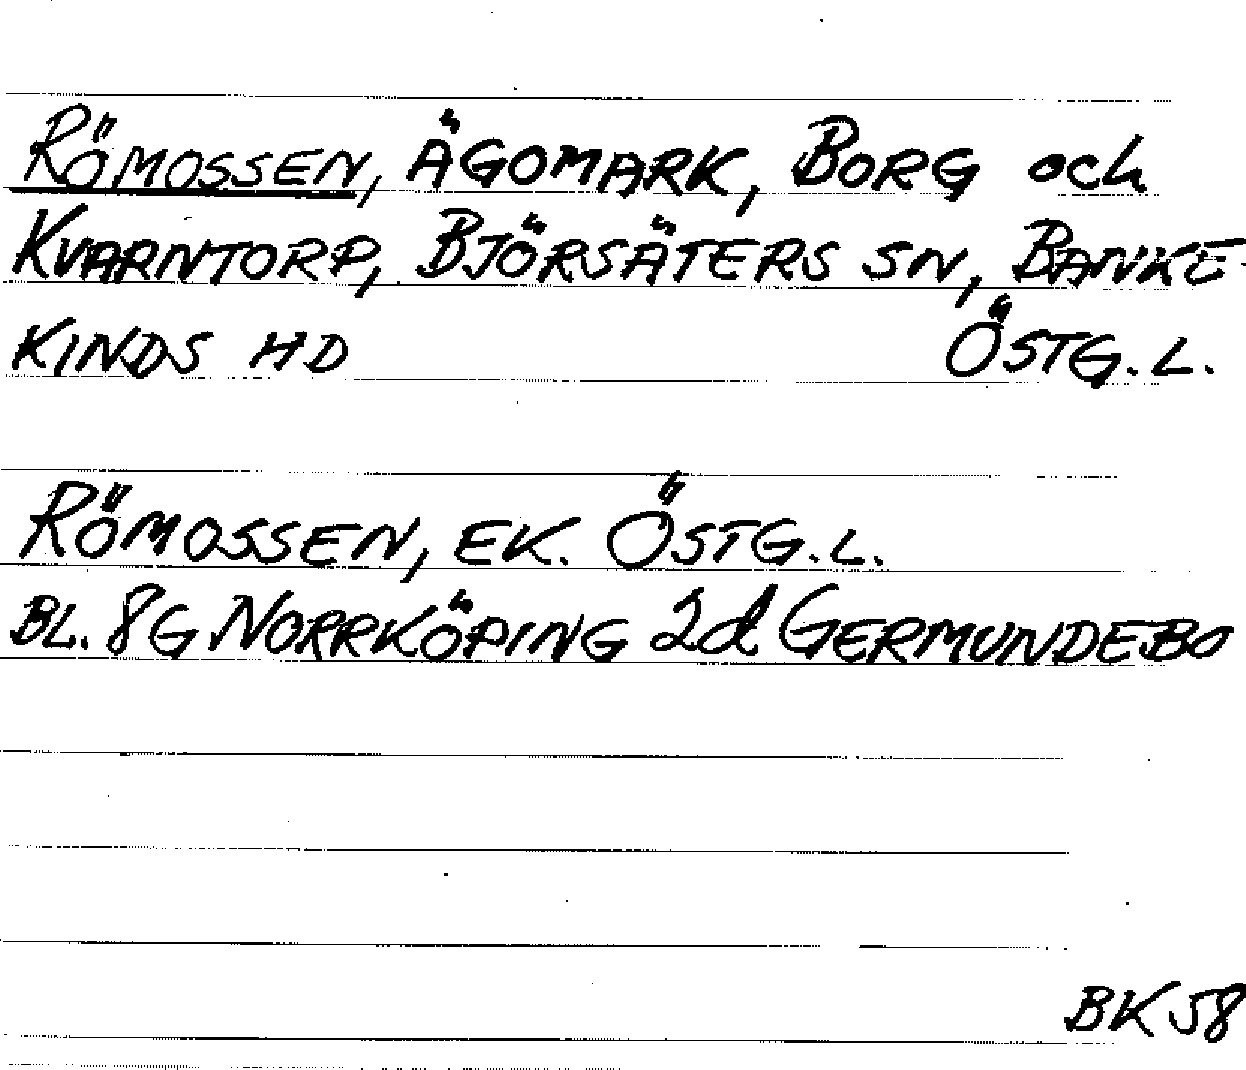 RÖMOSSEN, ÄGOMARK, BORG och
KVARNTORP, BJÖRSÄTERS SN, BANKE-
KINDS HD ÖSTG. L.
RÖMOSSEN, EK. ÖSTG. L.
BL. 8G NORRKÖPING 2d GERMUNDEBO
BK 58